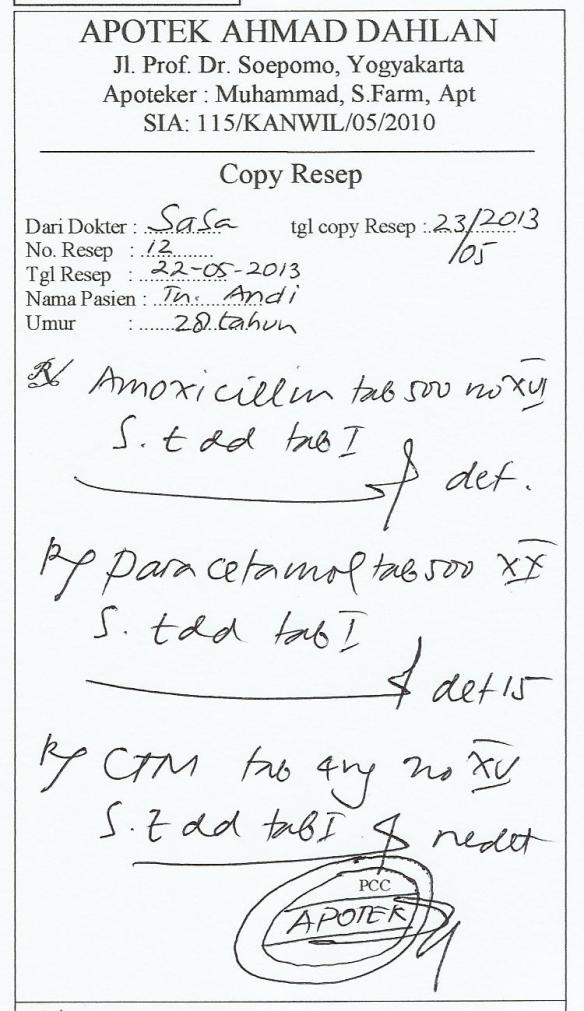 APOTEK AHMAD DAHLAN
Jl. Prof. Dr. Soepomo, Yogyakarta
Apoteker : Muhammad, S.Farm, Apt
SIA: 115/KANWIL/05/2010
Copy Resep
Dari Dokter : Sasa tgl copy Resep : 23/05/2013
No. Resep : 12
Tgl Resep : 22-05-2013
Nama Pasien : Tn. Andi
Umur : 28 tahun
R/ Amoxicillin tab 500 no XVI
S. t dd tab I
det.
R/ Paracetamol tab 500 XX
S. t dd tab I
det 15
R/ CTM tab 4mg no XV
S. t dd tab I nedet
PCC
APOTEK